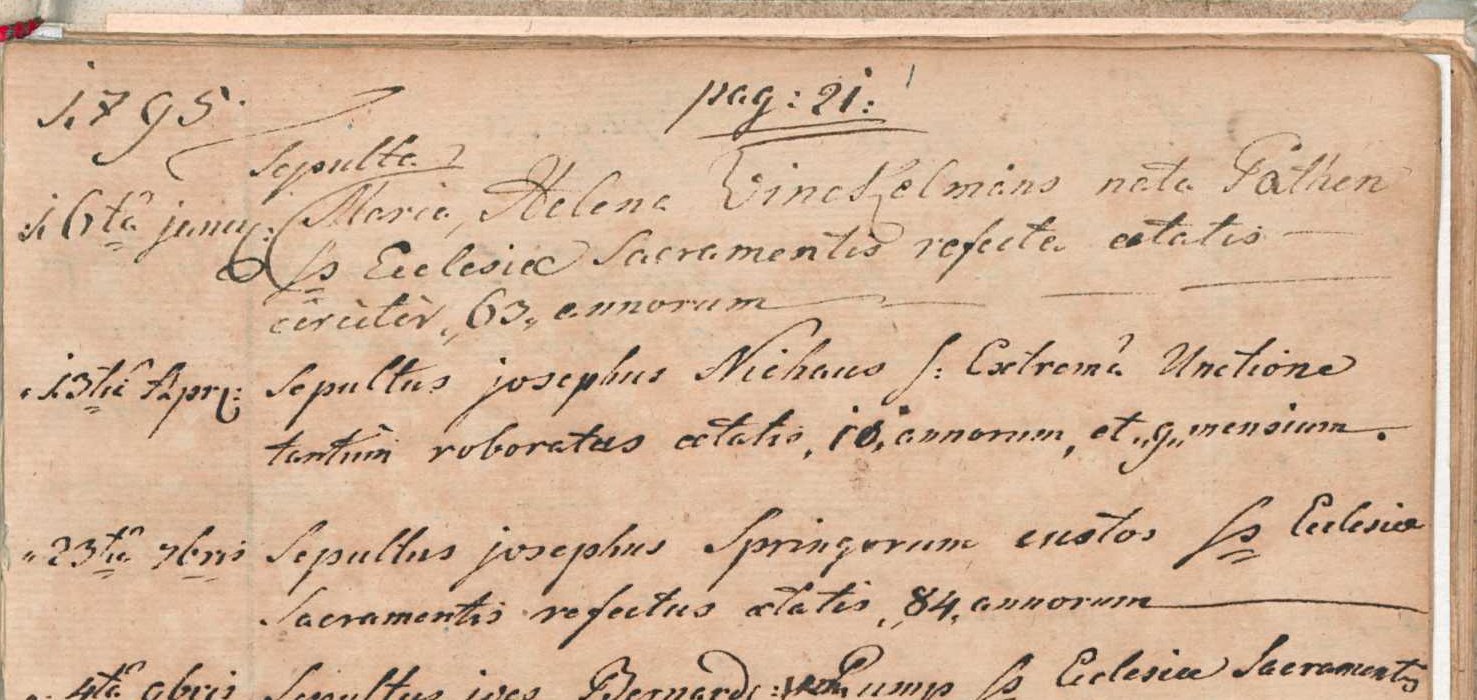 1795. pag: 21:
Sepulta
16ta janu: Maria Helena Vinckelmans nata Pathen
SS Ecclesiæ Sacramentis refecta ætatis
circiter, 63, annorum
13tia Apr: Sepultus josephus Niehaus S: Extrema Unctione
tantum roboratus ætatis, 18, annorum, et "9" mensium.
23tia 7bris Sepultus josephus Springorum custos SS Ecclesiæ
Sacramentis refectus ætatis, 84, annorum
4ta 9bris Sepultus joes Bernard: Pump SS Ecclesiæ Sacramentis